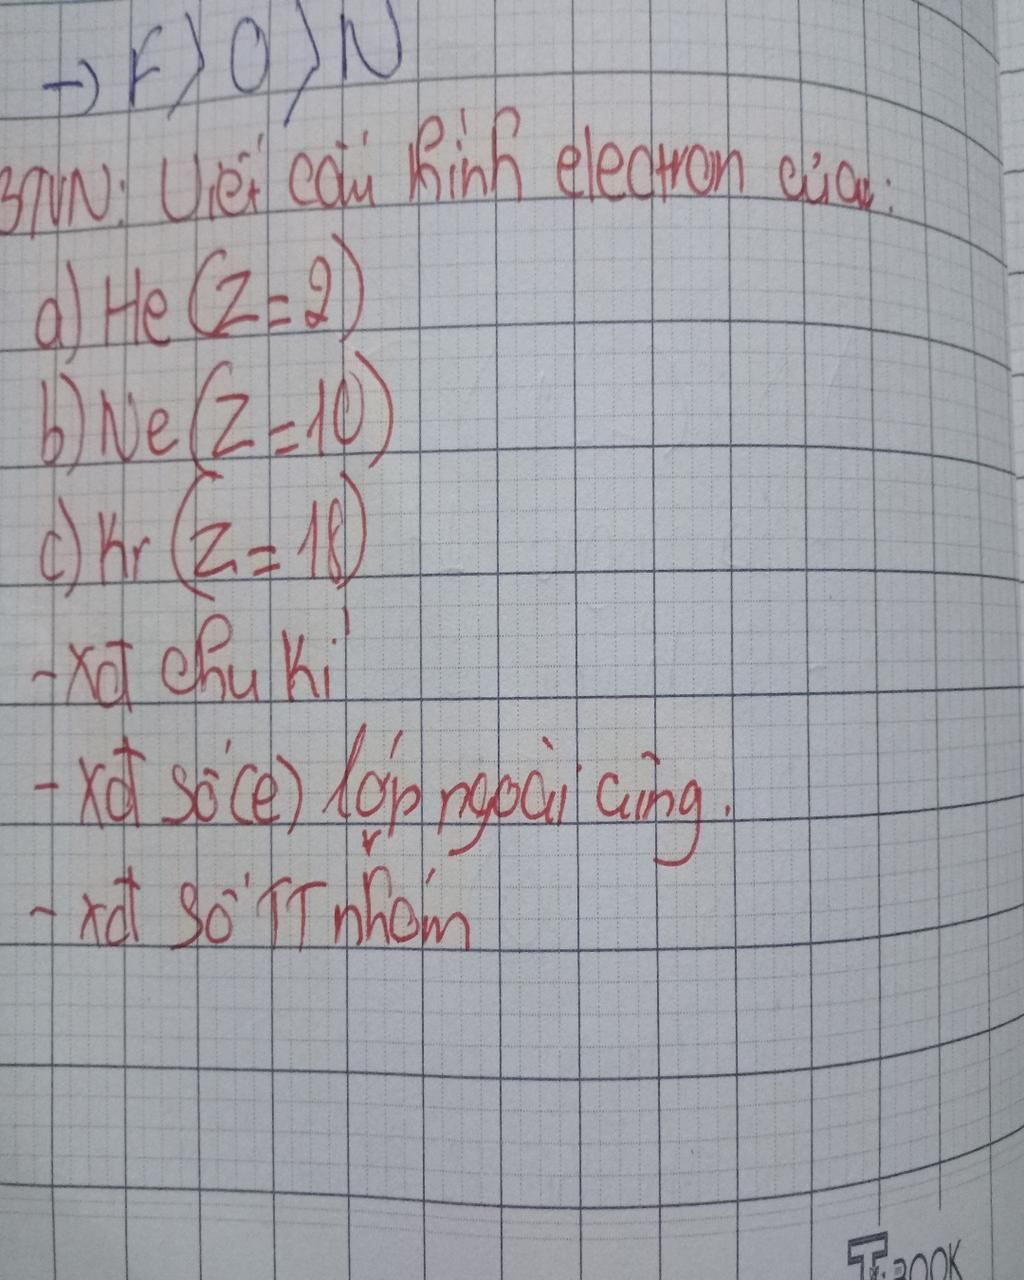 → F > O > N
BTVN: Viết cấu hình electron của:
a) He (Z = 2)
b) Ne (Z = 10)
c) Kr (Z = 18)
- xđ chu kì
- xđ số (e) lớp ngoài cùng.
- xđ số TT nhóm
T.BOOK